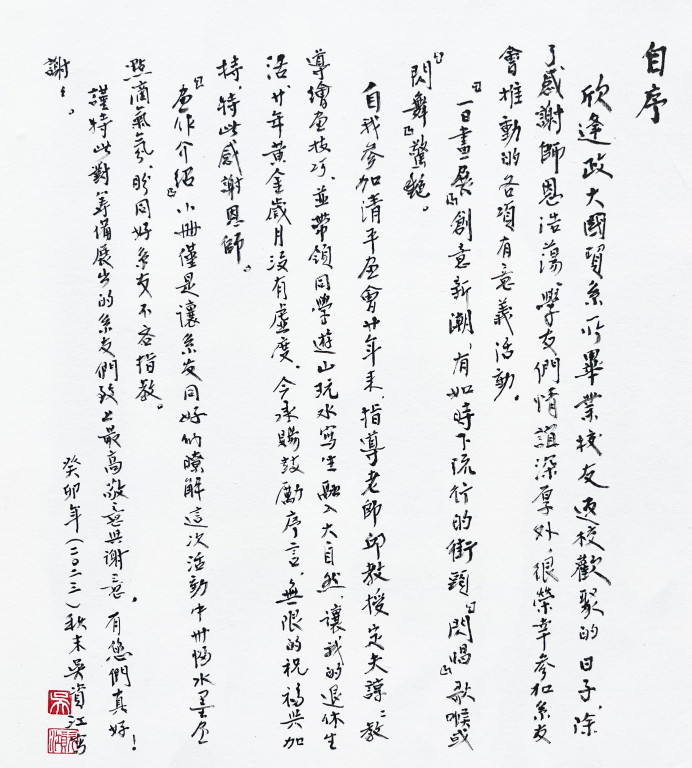 自序
欣逢政大國貿系所畢業校友返校歡聚的日子，除
了感謝師恩浩蕩、學友們情誼深厚外，很榮幸參加系友
會推動的各項有意義活動。
『一日畫展』創意新潮，有如時下流行的街頭『閃唱』歌喉或
『閃舞』驚艷。
自我參加清平画會廿年來，指導老師邱教授定夫諄諄教
導繪画技巧，並帶領同學遊山玩水寫生融入大自然，讓我的退休生
活廿年黃金歲月沒有虛度。今承賜鼓勵序言，無限的祝福與加
持，特此感謝恩師。
『画作介紹』小冊僅是讓系友同好們瞭解這次活動中卅幅水墨画
點滴氣氛，盼同好系友不吝指教。
謹特此對籌備展出的系友們致上最高敬意與謝意。有您們真好！
謝謝。
癸卯年（二〇二三）秋末吳資江
吳